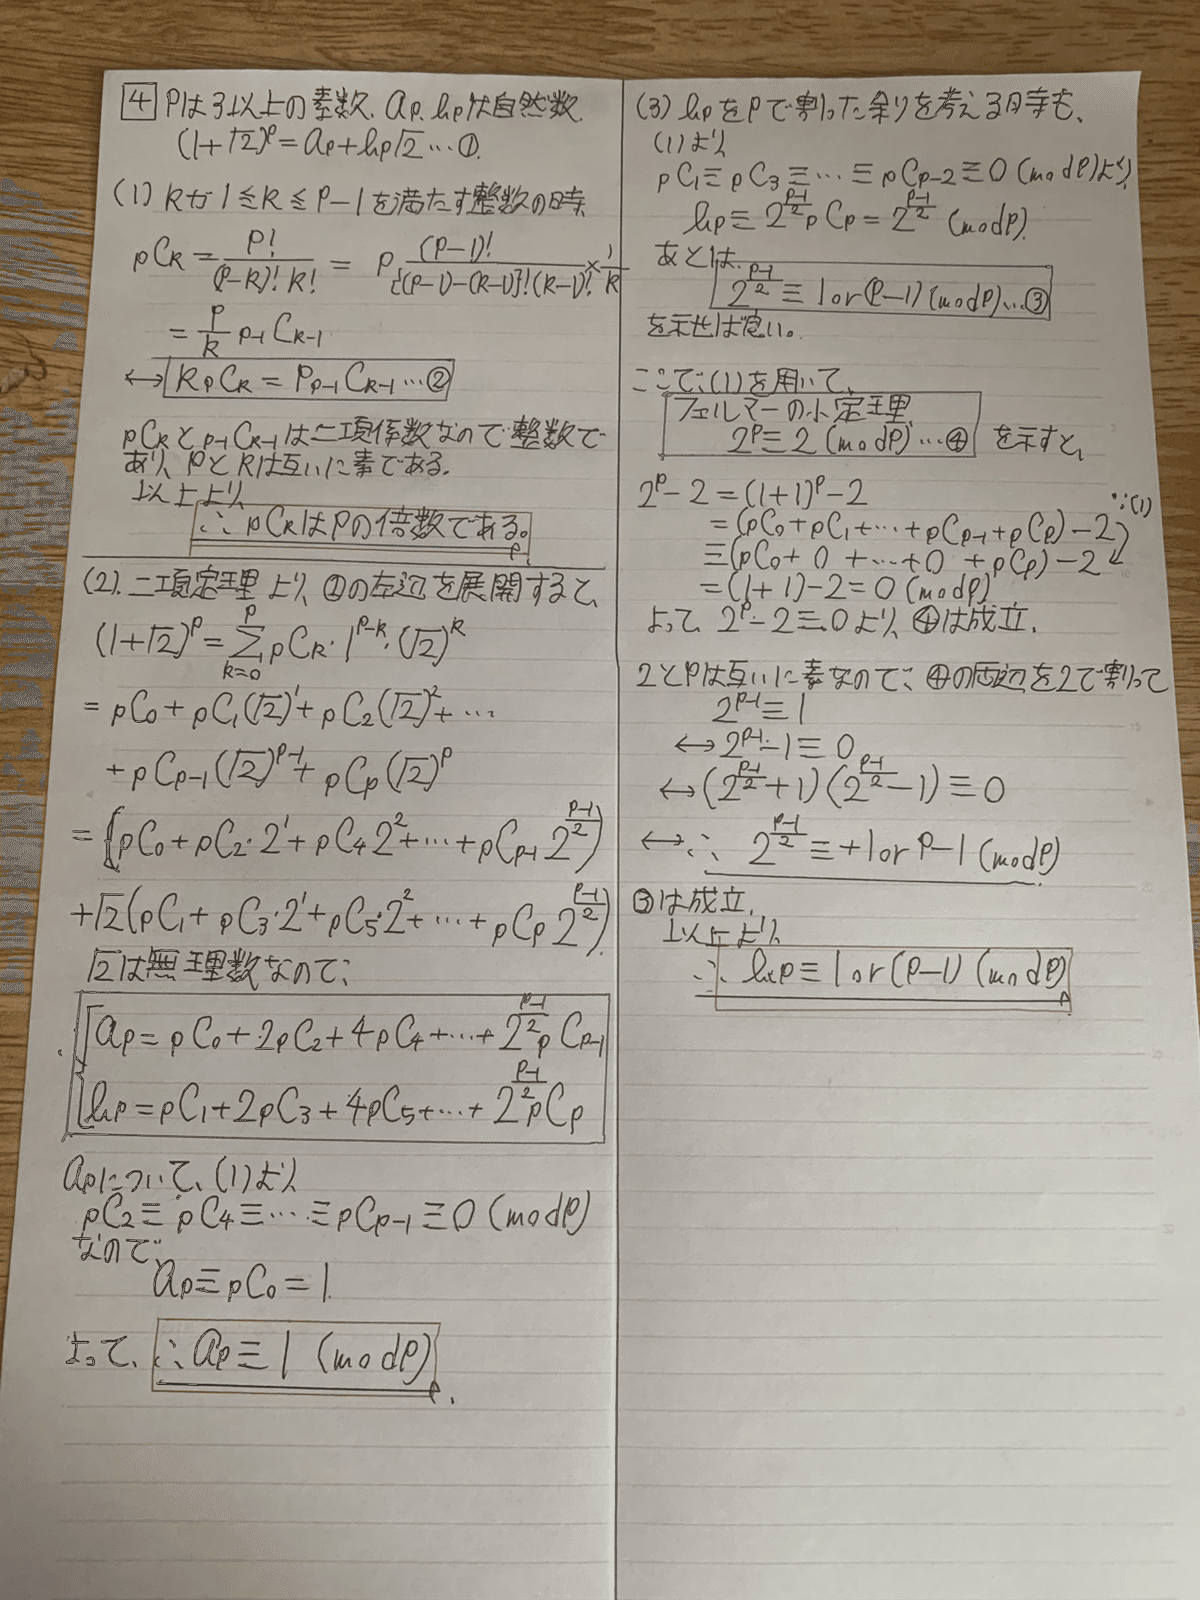 4 Pは3以上の素数. ap, bpは自然数.
(1+√2)^p = ap+bp√2 … ①.
(1) kが 1≦k≦P-1を満たす整数の時
pCk = P!/((P-k)! k!) = P (P-1)!/({(P-1)-(k-1)}!(k-1)!) × 1/k
= P/k p-1Ck-1
↔ k pCk = P p-1Ck-1 … ②
pCkとp-1Ck-1は二項係数なので整数で
あり、Pとkは互いに素である.
以上より、
∴ pCkはPの倍数である。
(2). 二項定理より、①の左辺を展開すると、
(1+√2)^p = Σ[k=0→p] pCk・1^(p-k)・(√2)^k
= pC0 + pC1(√2)^1 + pC2(√2)^2 + …
+ pCp-1(√2)^(p-1) + pCp(√2)^p
= (pC0 + pC2・2^1 + pC4 2^2 + … + pCp-1 2^((p-1)/2))
+√2(pC1 + pC3・2^1 + pC5・2^2 + … + pCp 2^((p-1)/2))
√2は無理数なので、
ap = pC0 + 2pC2 + 4pC4 + … + 2^((p-1)/2) pCp-1
bp = pC1 + 2pC3 + 4pC5 + … + 2^((p-1)/2) pCp
apについて、(1)より
pC2 ≡ pC4 ≡ … ≡ pCp-1 ≡ 0 (mod P)
なので、
ap ≡ pC0 = 1
よって、∴ ap ≡ 1 (mod P)
(3) bpをPで割った余りを考える時も、
(1)より
pC1 ≡ pC3 ≡ … ≡ pCp-2 ≡ 0 (mod P)より
bp ≡ 2^((p-1)/2) pCp = 2^((p-1)/2) (mod P).
あとは、
2^((p-1)/2) ≡ 1 or (P-1) (mod P) … ③
を示せば良い。
ここで、(1)を用いて、
フェルマーの小定理
2^p ≡ 2 (mod P) … ④ を示すと、
2^p - 2 = (1+1)^p - 2
= (pC0 + pC1 + … + pCp-1 + pCp) - 2 ∵(1)
≡ (pC0 + 0 + … + 0 + pCp) - 2
= (1+1) - 2 = 0 (mod P)
よって、2^p - 2 ≡ 0より、④は成立.
2とPは互いに素なので、④の両辺を2で割って
2^(p-1) ≡ 1
↔ 2^(p-1) - 1 ≡ 0
↔ (2^((p-1)/2) + 1)(2^((p-1)/2) - 1) ≡ 0
↔ ∴ 2^((p-1)/2) ≡ +1 or P-1 (mod P)
③は成立.
以上より
∴ bp ≡ 1 or (P-1) (mod P)